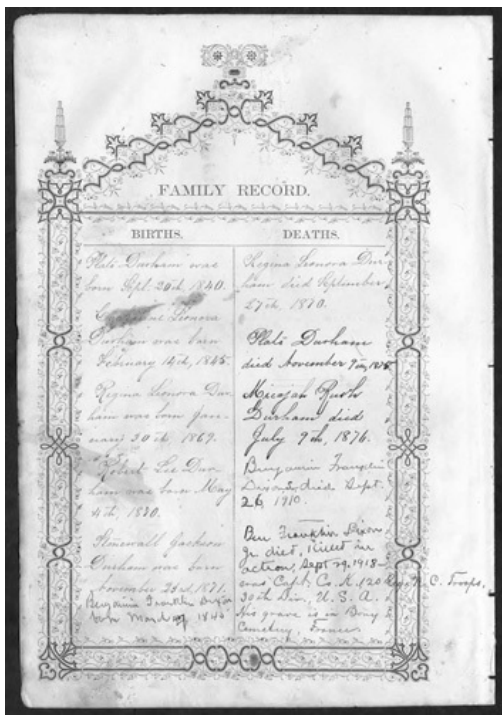 FAMILY RECORD.
BIRTHS.
Plato Durham was
born Sept. 20th, 1840.
Leonora
Durham was born
February 14th, 1845.
Regina Leonora Dur-
ham was born Jan-
uary 30th, 1869.
Robert Lee Dur-
ham was born May
4th, 1870.
Stonewall Jackson
Durham was born
November 23rd, 1871.
Benjamin Franklin Dixon
born March 1846
DEATHS.
Regina Leonora Dur-
ham died September
27th, 1870.
Plato Durham
died November 9th, 1875
Micajah Rush
Durham died
July 9th, 1876.
Benjamin Franklin
Dixon Sr died Sept.
26, 1910.
Ben Franklin Dixon
Jr. died, killed in
action, Sept 29, 1918—
was Capt. Co. K. 120 Reg. N. C. Troops,
30th Div, U. S. A.
His grave is in Bony
Cemetery, France